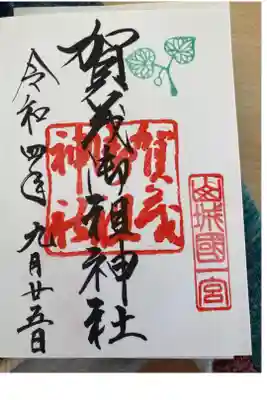 山城國一宮
賀茂御祖神社
賀茂
神社
令和四年九月廿五日